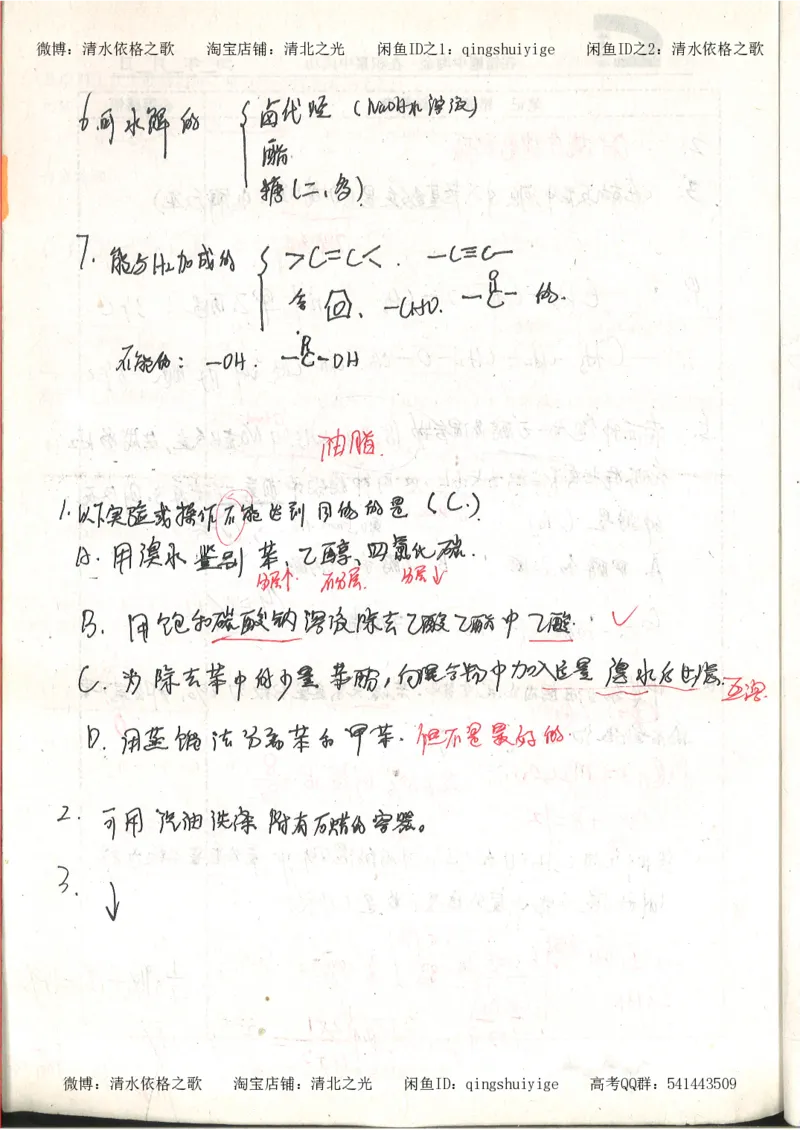 微博：清水依格之歌 淘宝店铺：清北之光 闲鱼ID之1：qingshuiyige 闲鱼ID之2：清水依格之歌
6.可水解的 { 卤代烃（NaOH水溶液）
酯
糖（二、多）
7. 能与H2加成的 { >C=C< . —C≡C—
含 、—CHO. —C— 的.
O
不能的：—OH. —C—OH
O
油脂.
1. 以下实验或操作不能达到目的的是（C.）
A. 用溴水鉴别苯、乙醇、四氯化碳.
分层↑. 不分层. 分层↓
B. 用饱和碳酸钠溶液除去乙酸乙酯中乙酸. ✓
C. 为除去苯中的少量苯酚，向混合物中加入适量溴水后过滤. 互溶.
D. 用蒸馏法分离苯和甲苯. 但不是最好的.
2. 可用汽油洗涤附有石蜡的容器。
3. ↓
微博：清水依格之歌 淘宝店铺：清北之光 闲鱼ID：qingshuiyige 高考QQ群：541443509